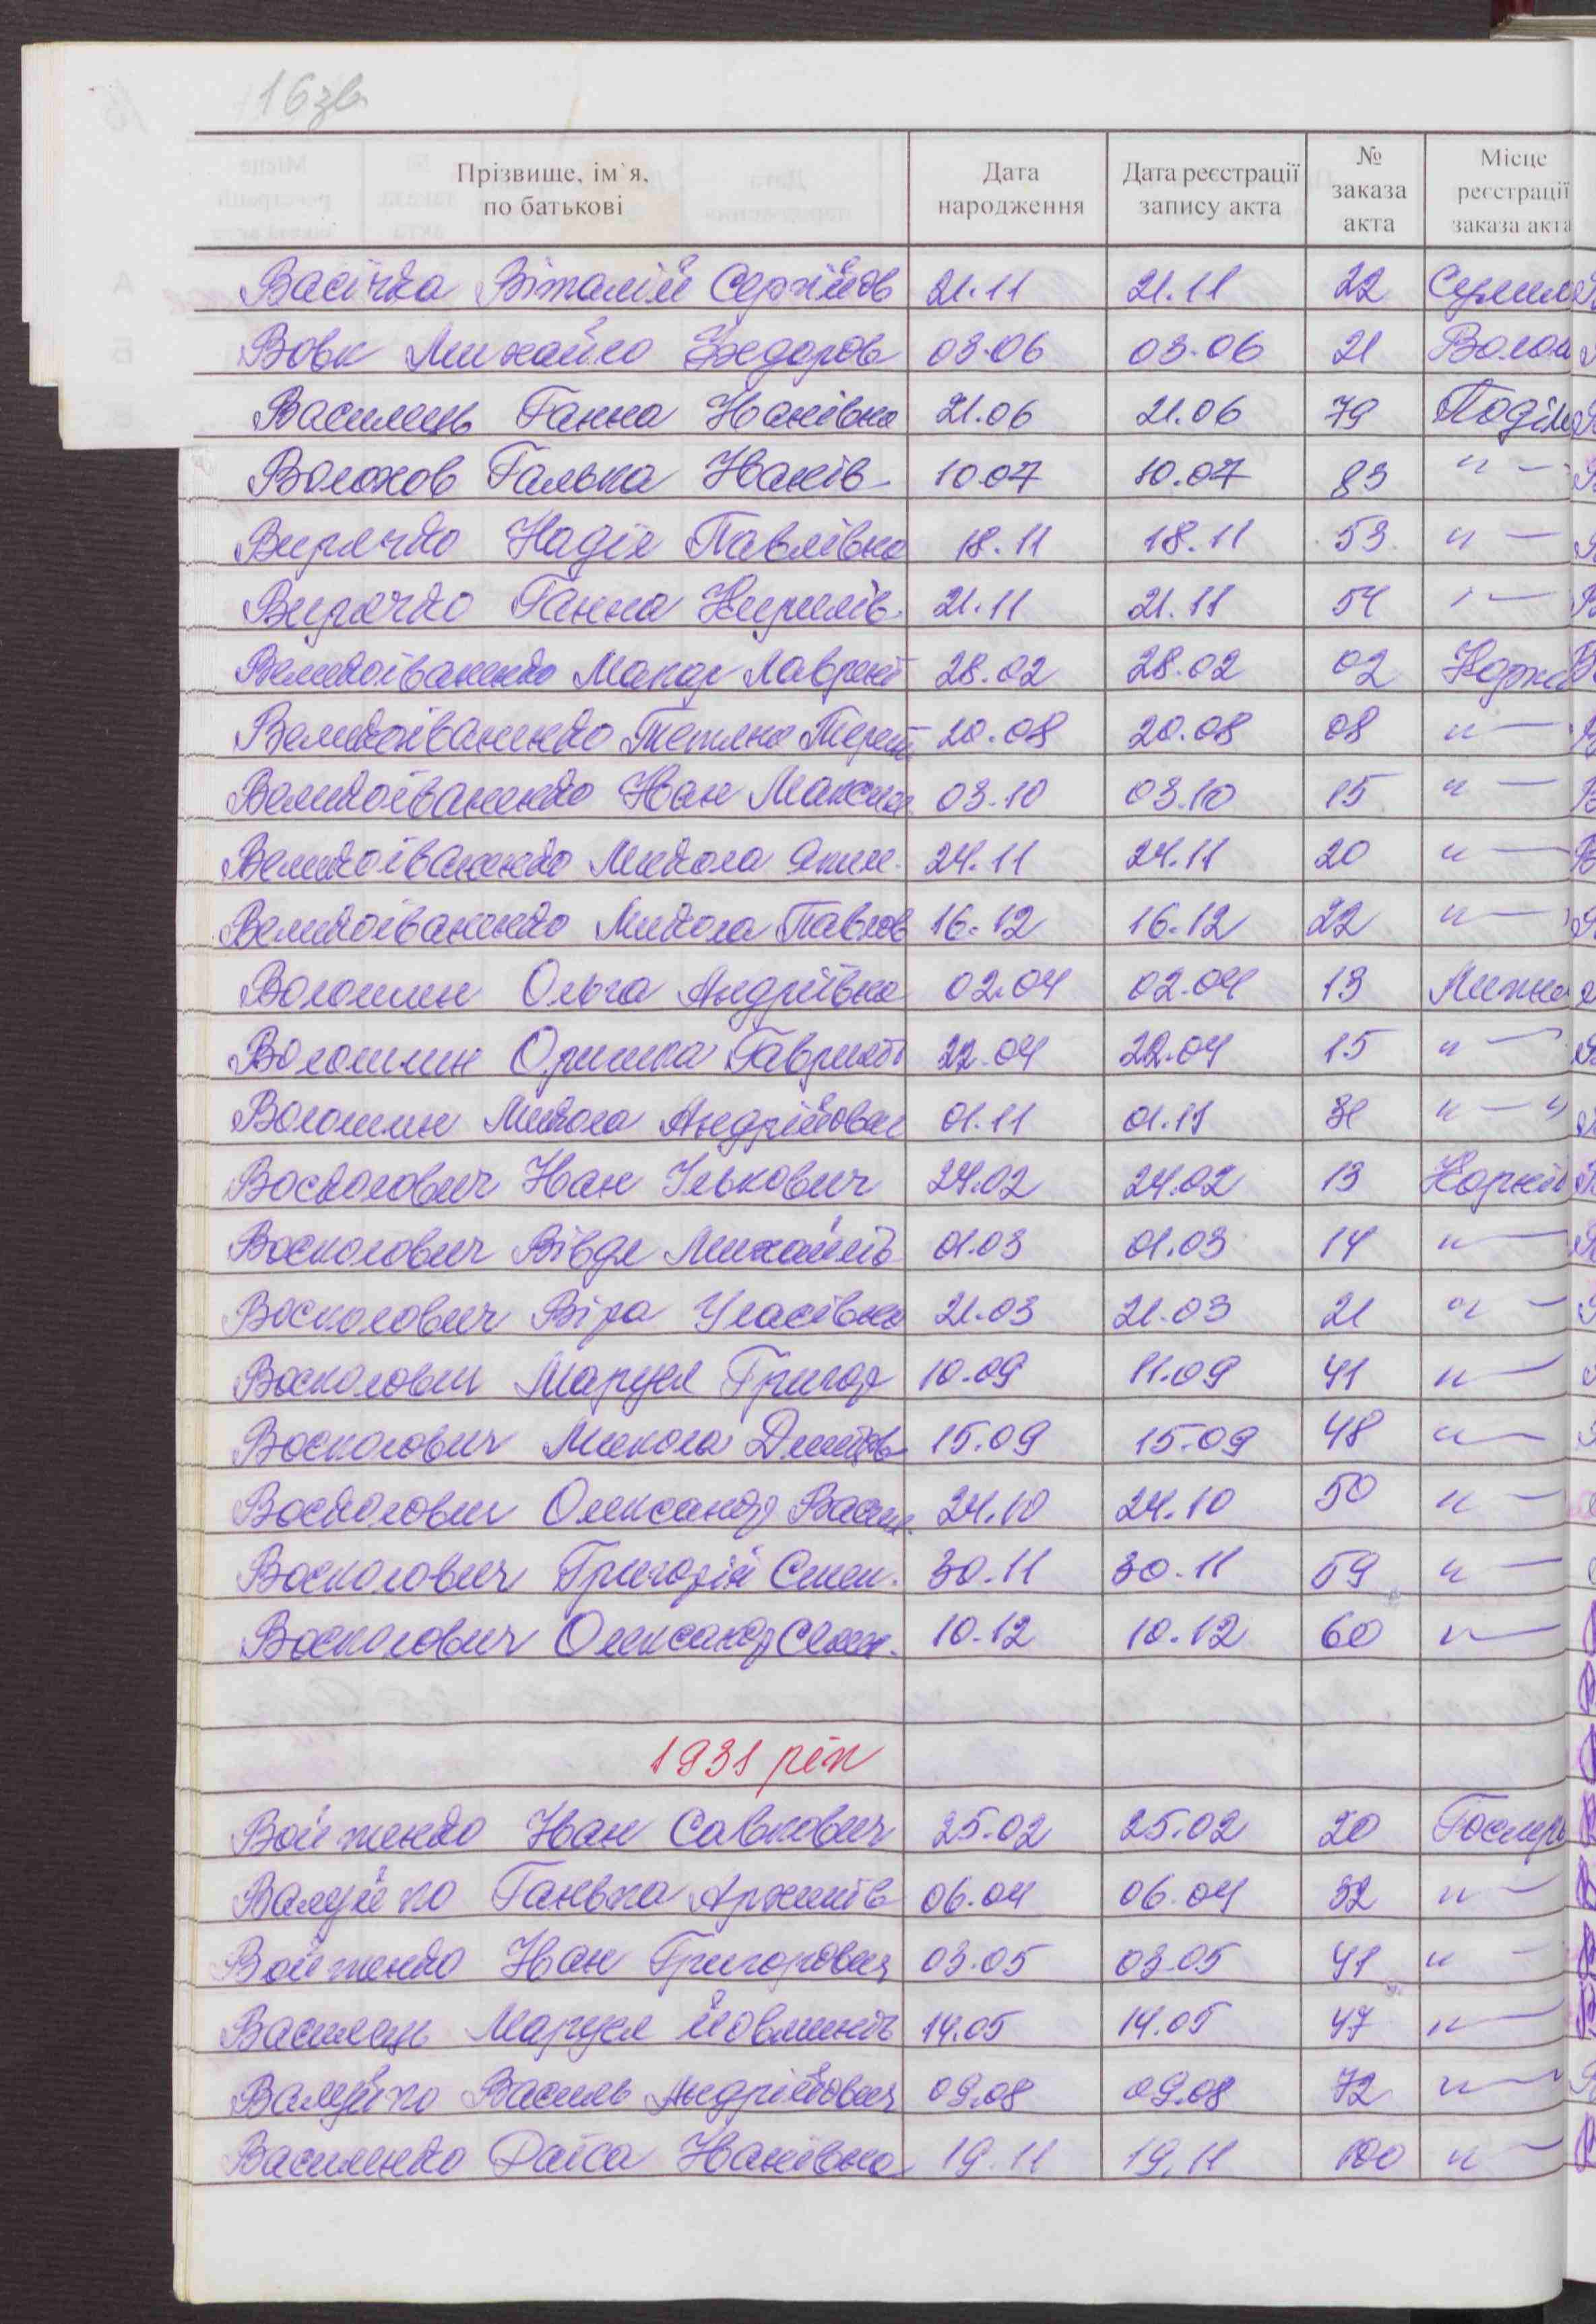 16зв
Прізвище, ім`я, по батькові Дата народження Дата реєстрації запису акта № заказа акта Місце реєстрації заказа акта
Васічка Віталій Сергійов 21.11 21.11 22
Вовк Михайло Федоров 03.06 03.06 21 Волош
Василець Ганна Іванівна 21.06 21.06 79 Поділ
Волохов Галька Іванів 10.07 10.07 83 " —
Вирячко Надія Павлівна 18.11 18.11 53 " —
Вирячко Ганна Кирилів. 21.11 21.11 54 " —
Великоіваненко Макар Лаврент 28.02 28.02 02
Великоіваненко Тетяна Терен 20.08 20.08 08 " —
Великоіваненко Іван Максим 03.10 03.10 15 " —
Великоіваненко Микола Яким. 24.11 24.11 20 " —
Великоіваненко Микола Павлов 16.12 16.12 22 " —
Волошин Ольга Андріївна 02.04 02.04 13
Волошин Оришка Гаврилів 22.04 22.04 15 " —
Волошин Микола Андрійович 01.11 01.11 31 " — "
Восколович Іван Ількович 24.02 24.02 13 Корнів
Восколович Вівдя Михайлів 01.03 01.03 14 " —
Восколович Віра Уласівна 21.03 21.03 21 " —
Восколович Маруся Григор 10.09 11.09 41 " —
Восколович Микола Дмитров 15.09 15.09 48 " —
Восколович Олександр Васил. 24.10 24.10 50 " —
Восколович Григорій Семен. 30.11 30.11 59 " —
Восколович Олександр Семен. 10.12 10.12 60 " —
1931 рік
Войтенко Іван Савкович 25.02 25.02 20
Валуйко Ганька Архипів 06.04 06.04 32 " —
Войтенко Іван Григорович 03.05 03.05 41 " —
Василець Маруся 14.05 14.05 47 " —
Валуйко Василь Андрійович 09.08 09.08 72 " —
Василенко Раїса Іванівна 19.11 19.11 100 " —